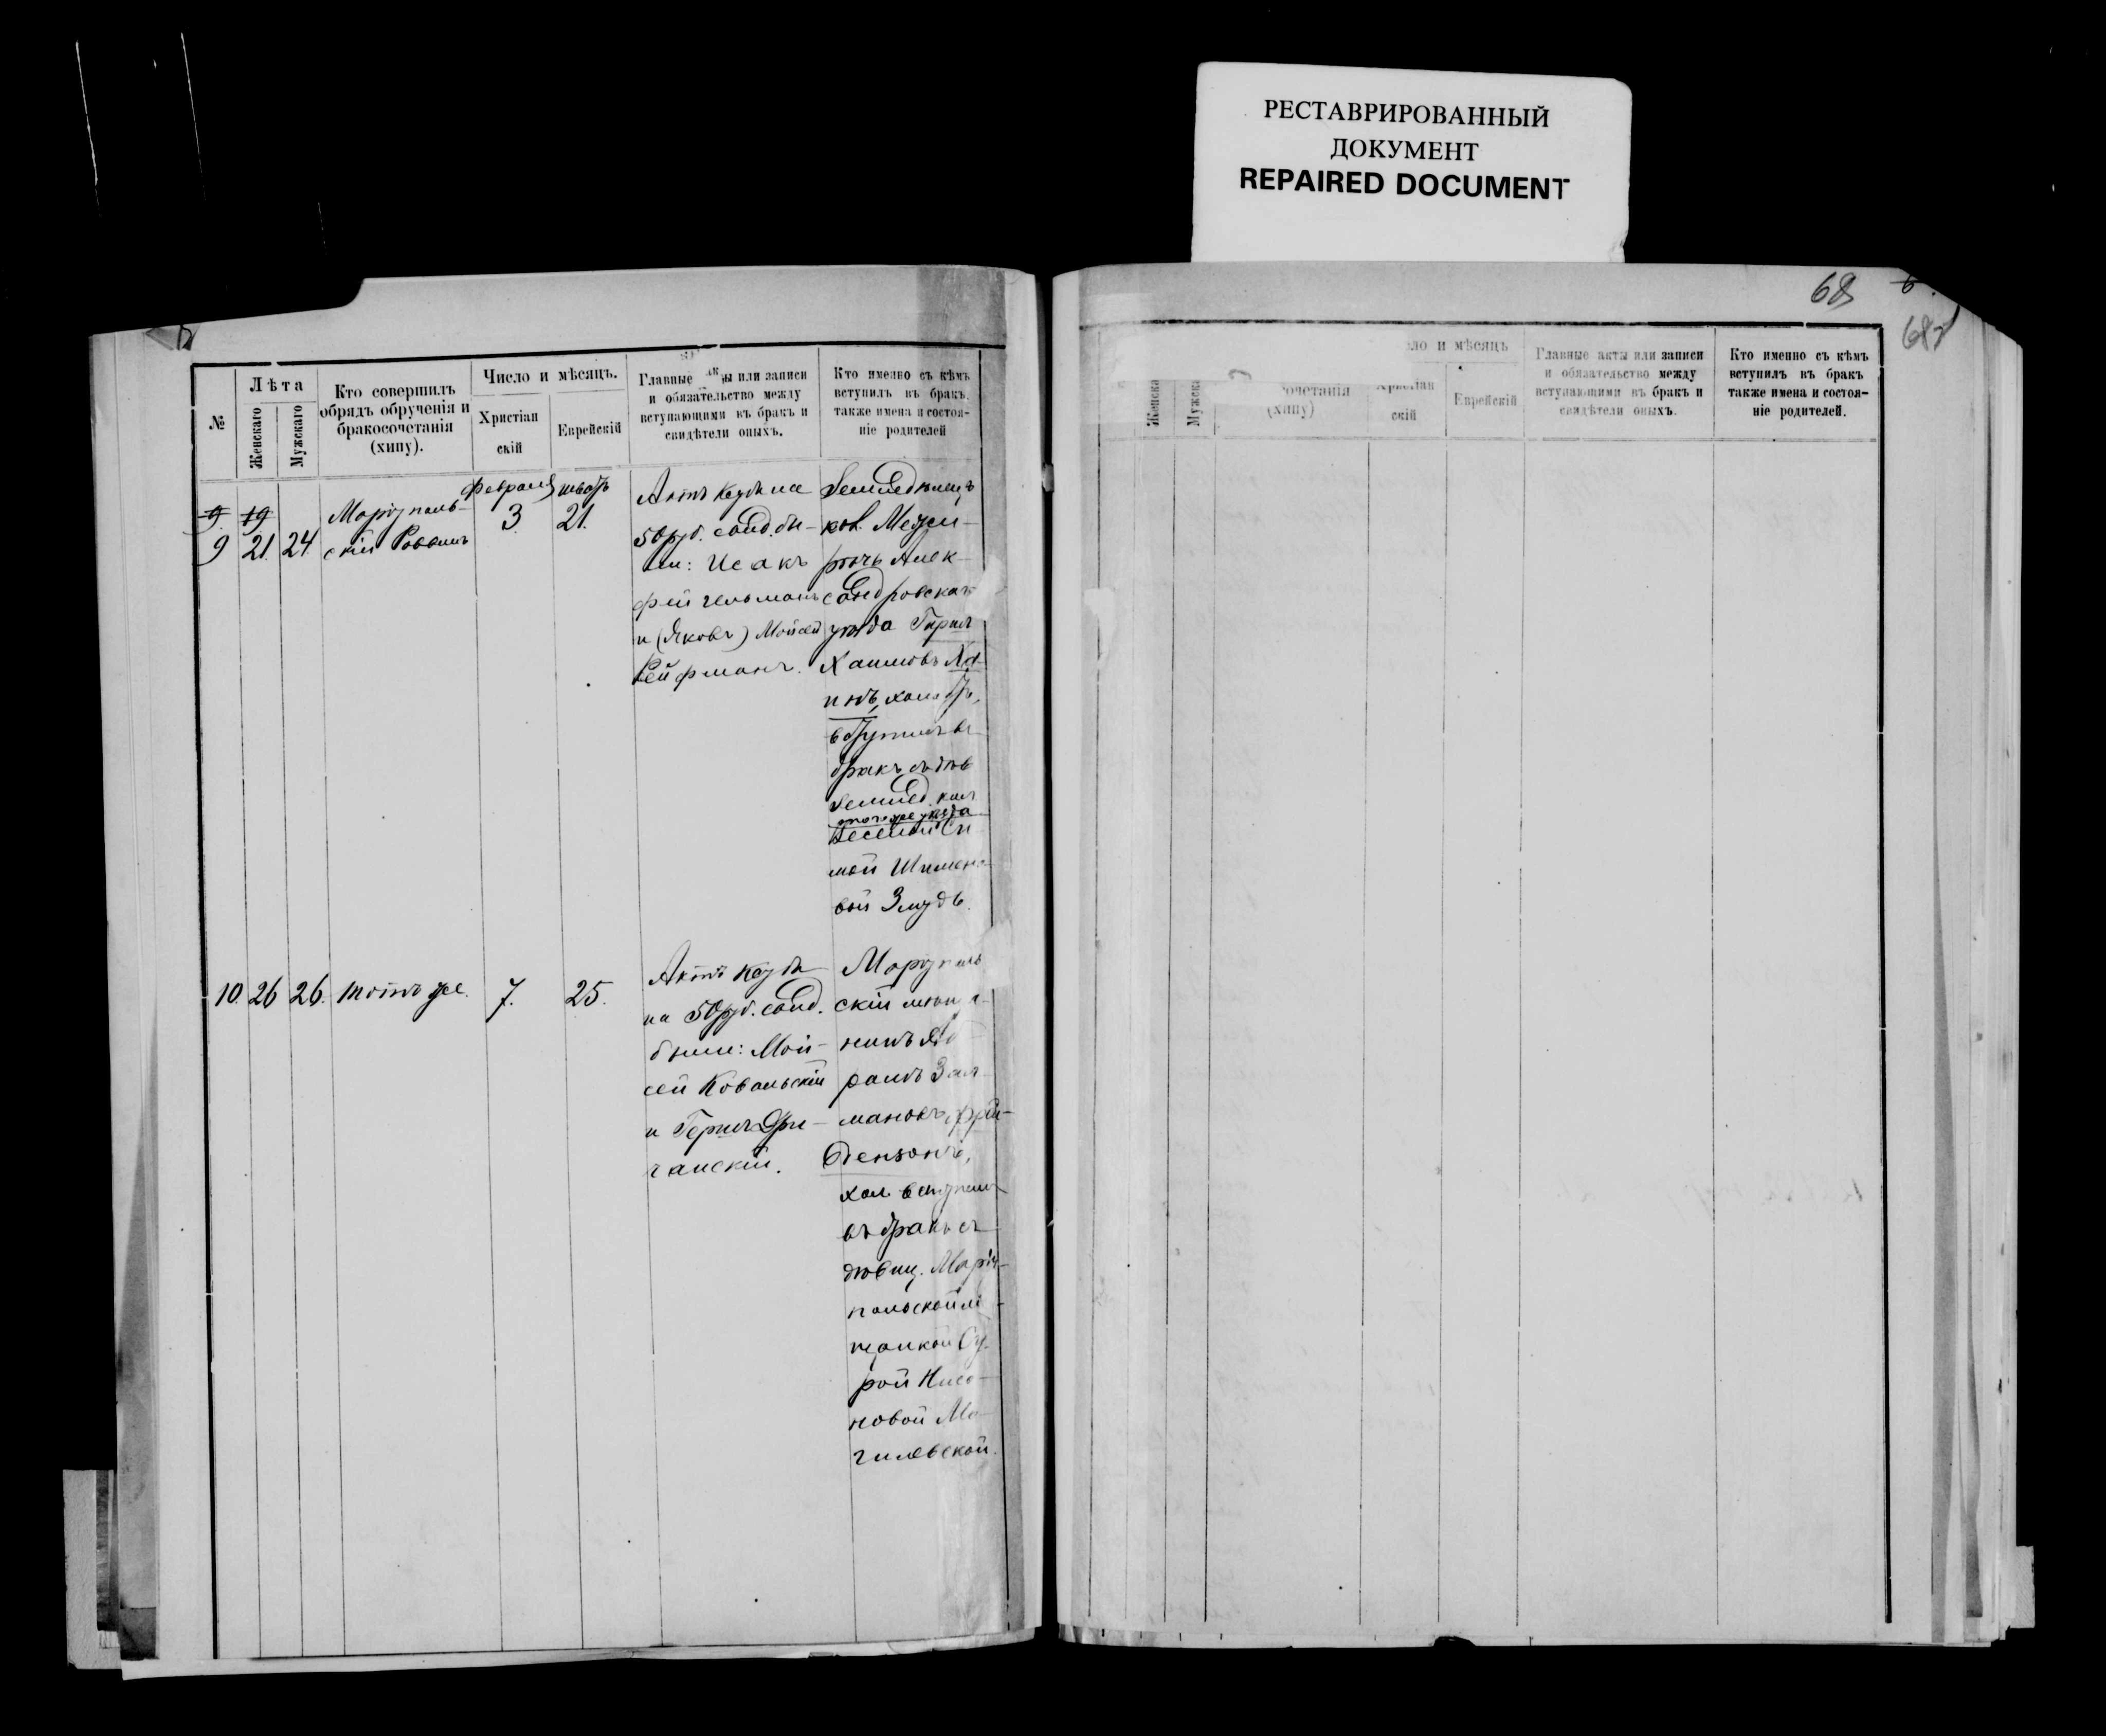 РЕСТАВРИРОВАННЫЙ
ДОКУМЕНТ
REPAIRED DOCUMENT
№
Лѣта
Женскаго
Мужскаго
Кто совершилъ
обрядъ обрученія и
бракосочетанія
(хипу).
Число и мѣсяцъ.
Христіан
скій
Еврейскій
Главные акты или записи
и обязательство между
вступающими въ бракъ и
свидѣтели оныхъ.
Кто именно съ кѣмъ
вступилъ въ бракъ
также имена и состоя-
ніе родителей
9 19
9 21. 24
Маріуполь-
скій Раввинъ
Февраля
3
шватъ
21.
Актъ Кеуба на
50 руб. свид. бы-
ли: Исакъ
Фейгельманъ
и (Яковъ) Мойсей
Рейфманъ.
Земледѣлецъ
кол. Межи-
рѣчь Алек-
сандровскаго
уѣзда
Хаимовъ
холостъ,
вступилъ въ
бракъ съ дѣв
Землед. кол
того же уѣзда
Веселой Си
мой Шимено-
вой Змудъ.
10. 26 26. тотъ же. 7. 25.
Актъ Кеуба
на 50 руб. свид.
были: Мой-
сей Ковальскій
и
чанскій.
Маріуполь
скій мѣща-
нинъ Аб-
рамъ Зал-
мановъ Фри-
дензонъ,
хол. вступилъ
въ бракъ съ
дѣвиц. Маріу-
польской мѣ-
щанкой Су-
рой Нисо-
новой Мо-
гилевской.
68
68
ло и мѣсяцъ
Женска
Мужска
очетанія
(хипу)
Христіан
скій
Еврейскій
Главные акты или записи
и обязательство между
вступающими въ бракъ и
свидѣтели оныхъ.
Кто именно съ кѣмъ
вступилъ въ бракъ
также имена и состоя-
ніе родителей.